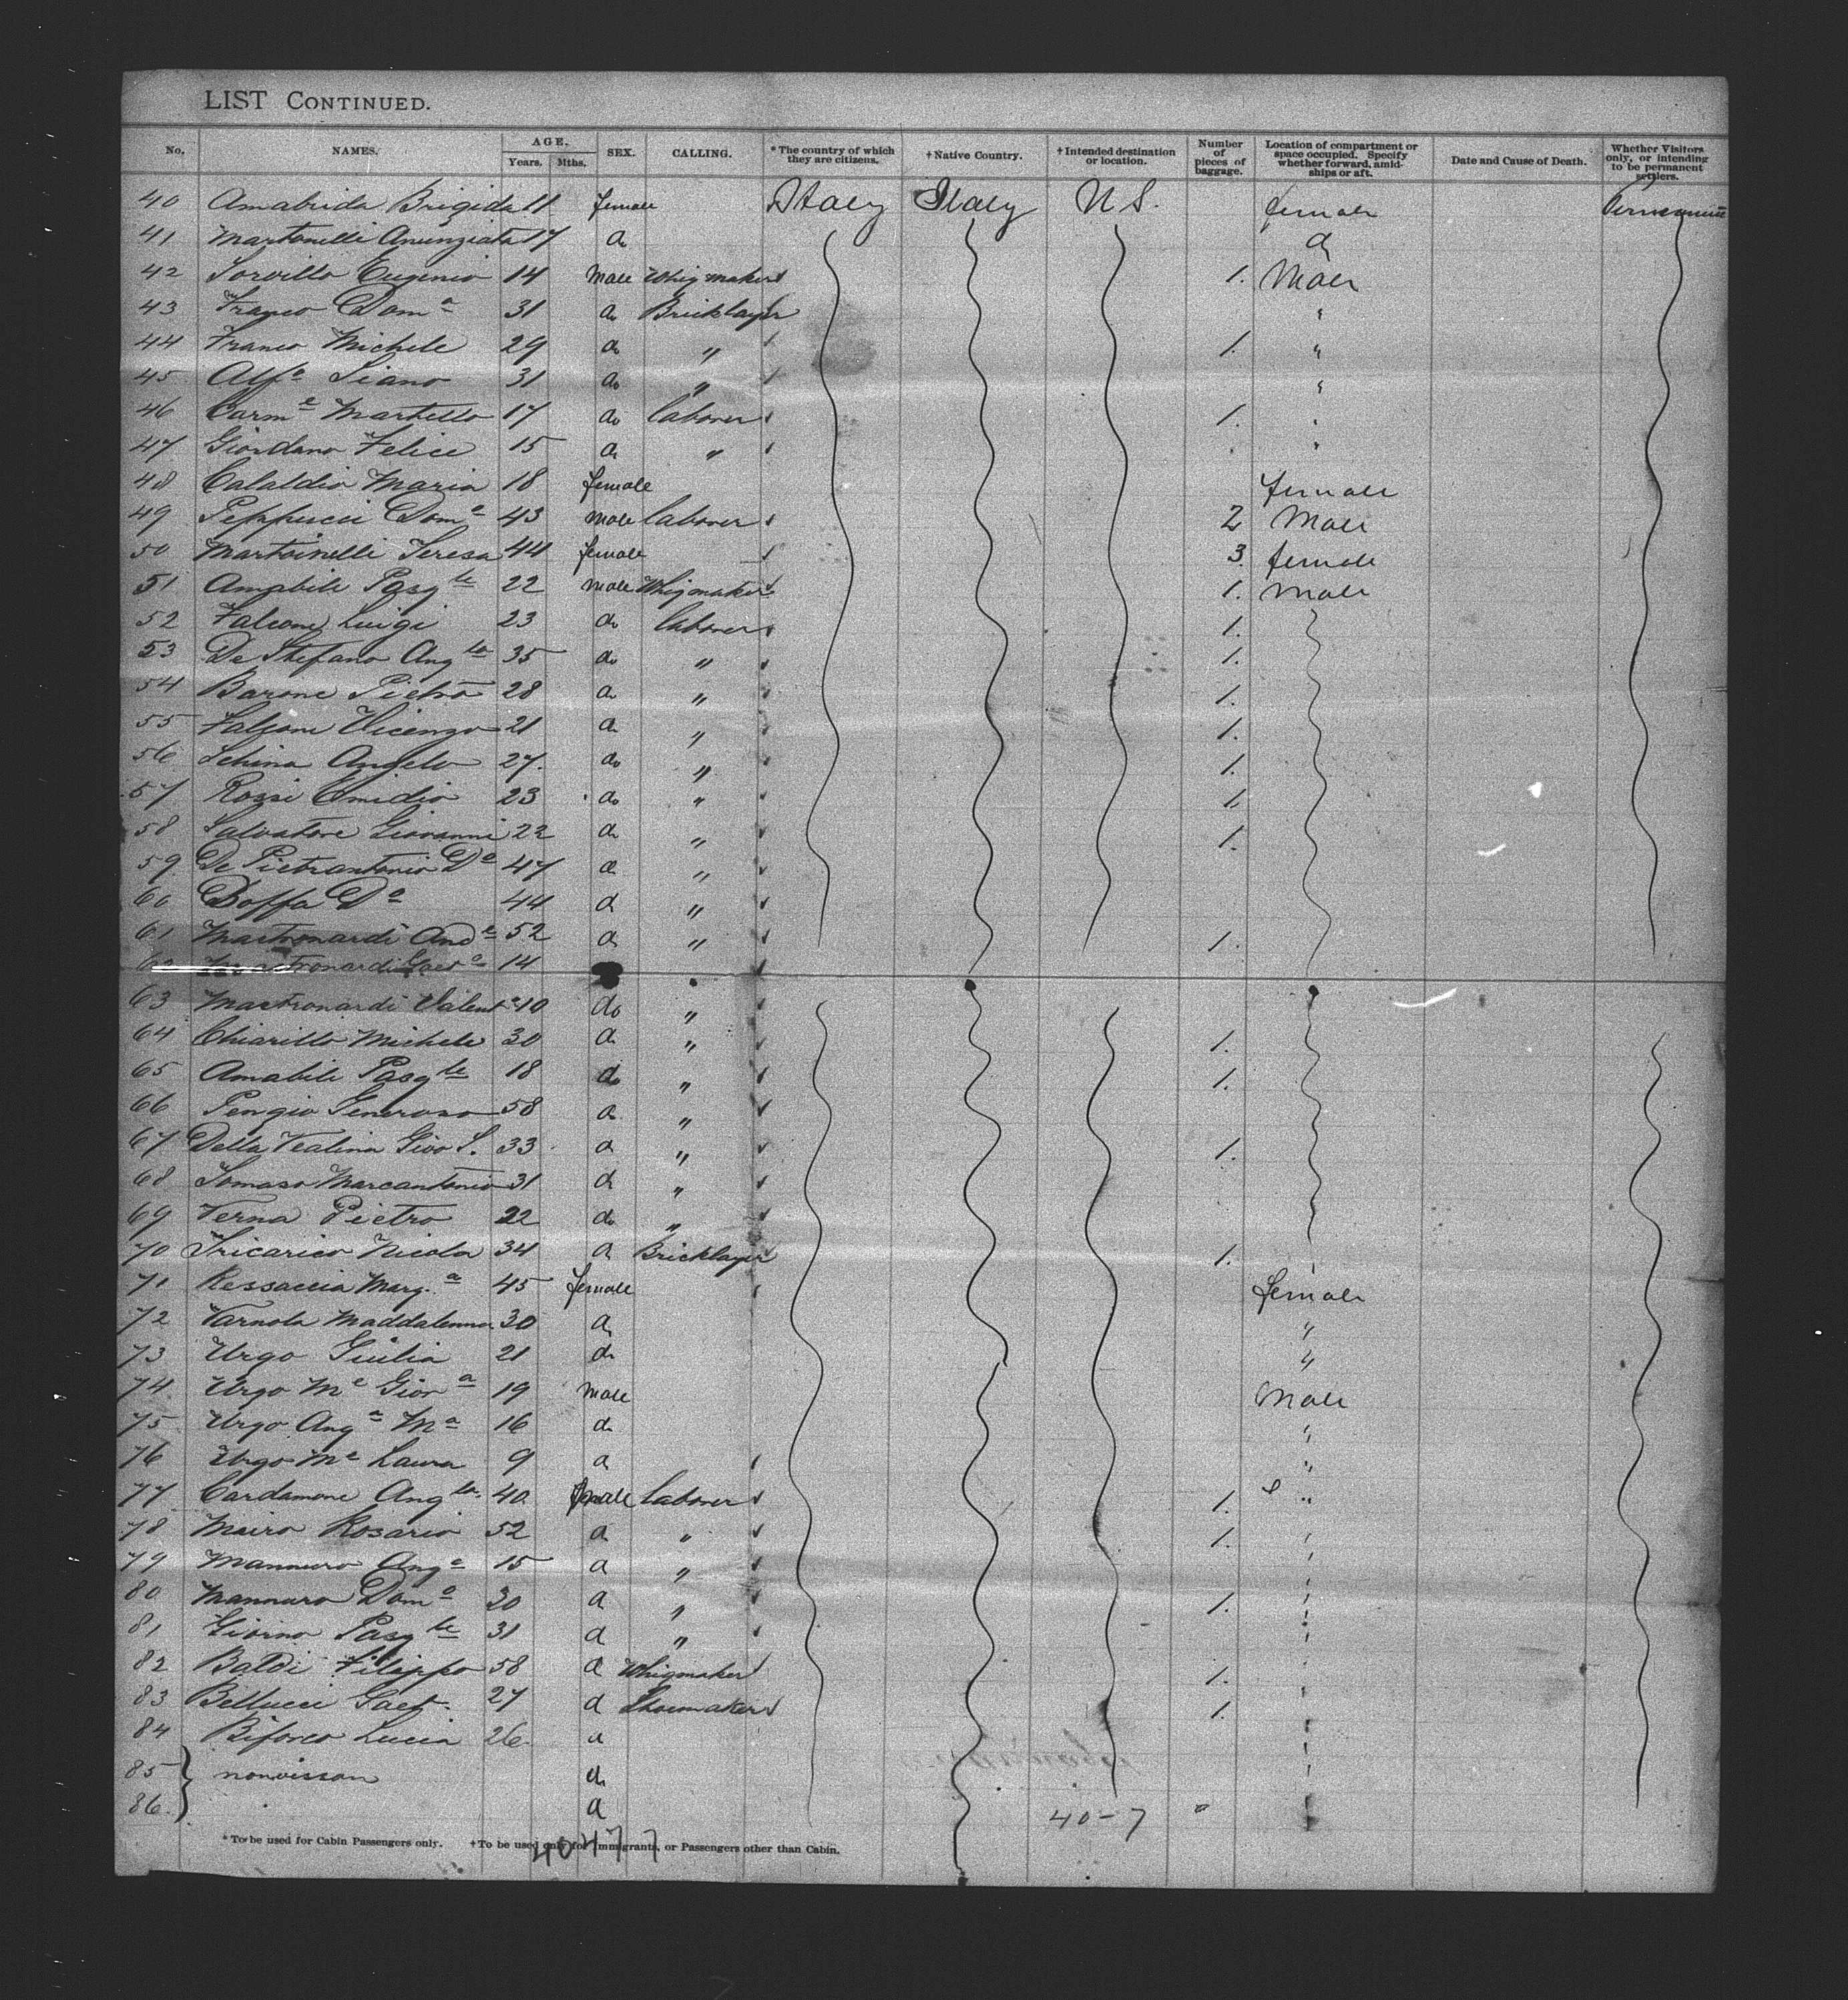 LIST CONTINUED.
No. NAMES. AGE. Years. Mths. SEX. CALLING. * The country of which they are citizens. † Native Country. † Intended destination or location. Number of pieces of baggage. Location of compartment or space occupied. Specify whether forward, amidships or aft. Date and Cause of Death. Whether Visitors only, or intending to be permanent settlers.
40 Amabrida Brigida 11 female Italy Italy U S. female
41 Martonelli Anunziata 17 do do
42 Sorvillo Eugenio 14 male Whigmaker 1. Male
43 Franco Domo 31 do Bricklayer "
44 Franco Michele 29 do " 1. "
45 Alfo Siano 31 do " "
46 Carme Martello 17 do laborer 1. "
47 Giordano Felice 15 do " "
48 Cataldio Maria 18 female female
49 Peppucci Domo 43 male laborer 2 Male
50 Martoinelli Teresa 44 female 3. female
51 Amabile Pasqle 22 male Whigmaker 1. Male
52 Falcone Luigi 23 do laborer 1.
53 De Stefano Anglo 35 do " 1.
54 Barone Pietro 28 do " 1.
55 Falcone Vicenzo 21 do " 1.
56 Schina Angelo 27. do " 1.
57 Rossi Emidio 23 do " 1.
58 Salvatore Giovanni 22 do " 1.
59 De Pietrantonio Do 47 do "
60 Boffa Do 44 do "
61 Mastronardi Ande 52 do " 1.
62 Mastronardi Gaeto 14
63 Mastronardi Valento 10 do "
64 Chiarillo Michele 30 do " 1.
65 Amabile Pasqle 18 do " 1.
66 Generoso 58 do "
67 Della Giov S. 33 do " 1.
68 Tomaso Marcantonio 31 do "
69 Verna Pietro 22 do "
70 Tricarico Nicola 34 do Bricklayer 1.
71 Ressaccia Marg.a 45 female female
72 Varnola Maddalenna 30 do "
73 Urgo Giulia 21 do "
74 Urgo Ma Giova 19 male Male
75 Urgo Anga Ma 16 do "
76 Urgo Ma Laura 9 do "
77 Cardamone Anglo 40 male laborer 1. "
78 Mairo Rosario 52 do " 1. "
79 Mannuro Ango 15 do " "
80 Mannuro Domo 30 do " 1. "
81 Giorno Pasqle 31 do " "
82 Baldi Filippo 58 do Whigmaker 1. "
83 Bellucci Gaet. 27 do Shoemaker 1. "
84 Biforco Lucia 26 do "
85 do "
86 do
40-7
* To be used for Cabin Passengers only. † To be used only for Immigrants, or Passengers other than Cabin.